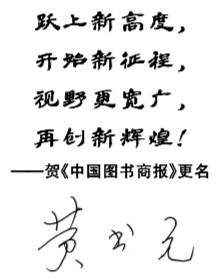 跃上新高度，
开始新征程，
视野更宽广，
再创新辉煌！
——贺《中国图书商报》更名
黄书元